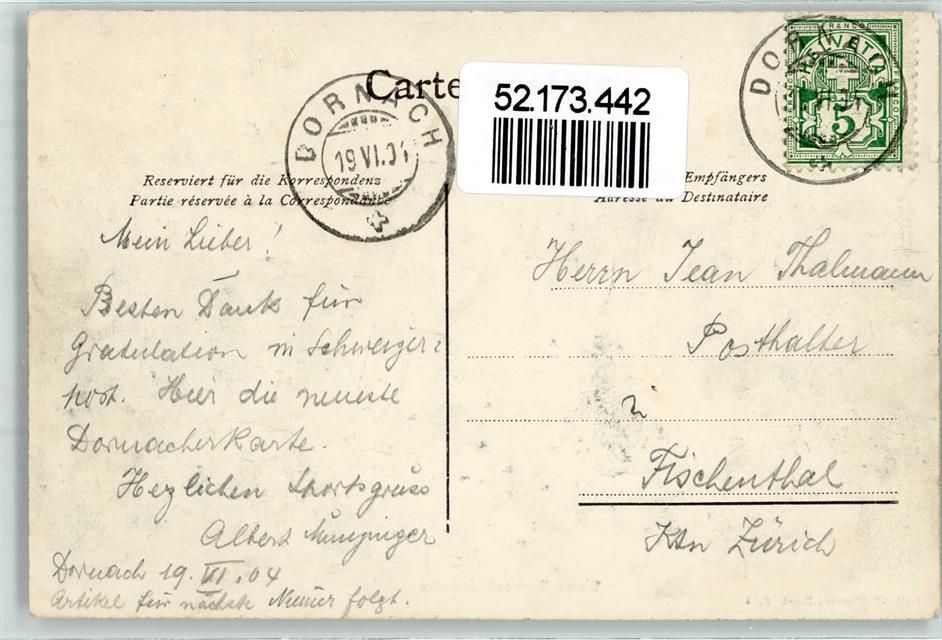 Carte
52.173.442
DORNACH
19 VI.04
DORN
HELVETIA
FRANCO
5
Reserviert für die Korrespondenz
Partie réservée à la Correspondance
Empfängers
Adresse du Destinataire
Mein Lieber!
Besten Dank für
Gratulation in Schweizer=
post. Hier die neueste
Dornacherkarte.
Herzlichen Sportsgruss
Albert
Dornach 19. VI. 04
Artikel für nächste Numer folgt.
Herrn Jean Thalmann
Posthalter
in
Fischenthal
Ktn Zürich